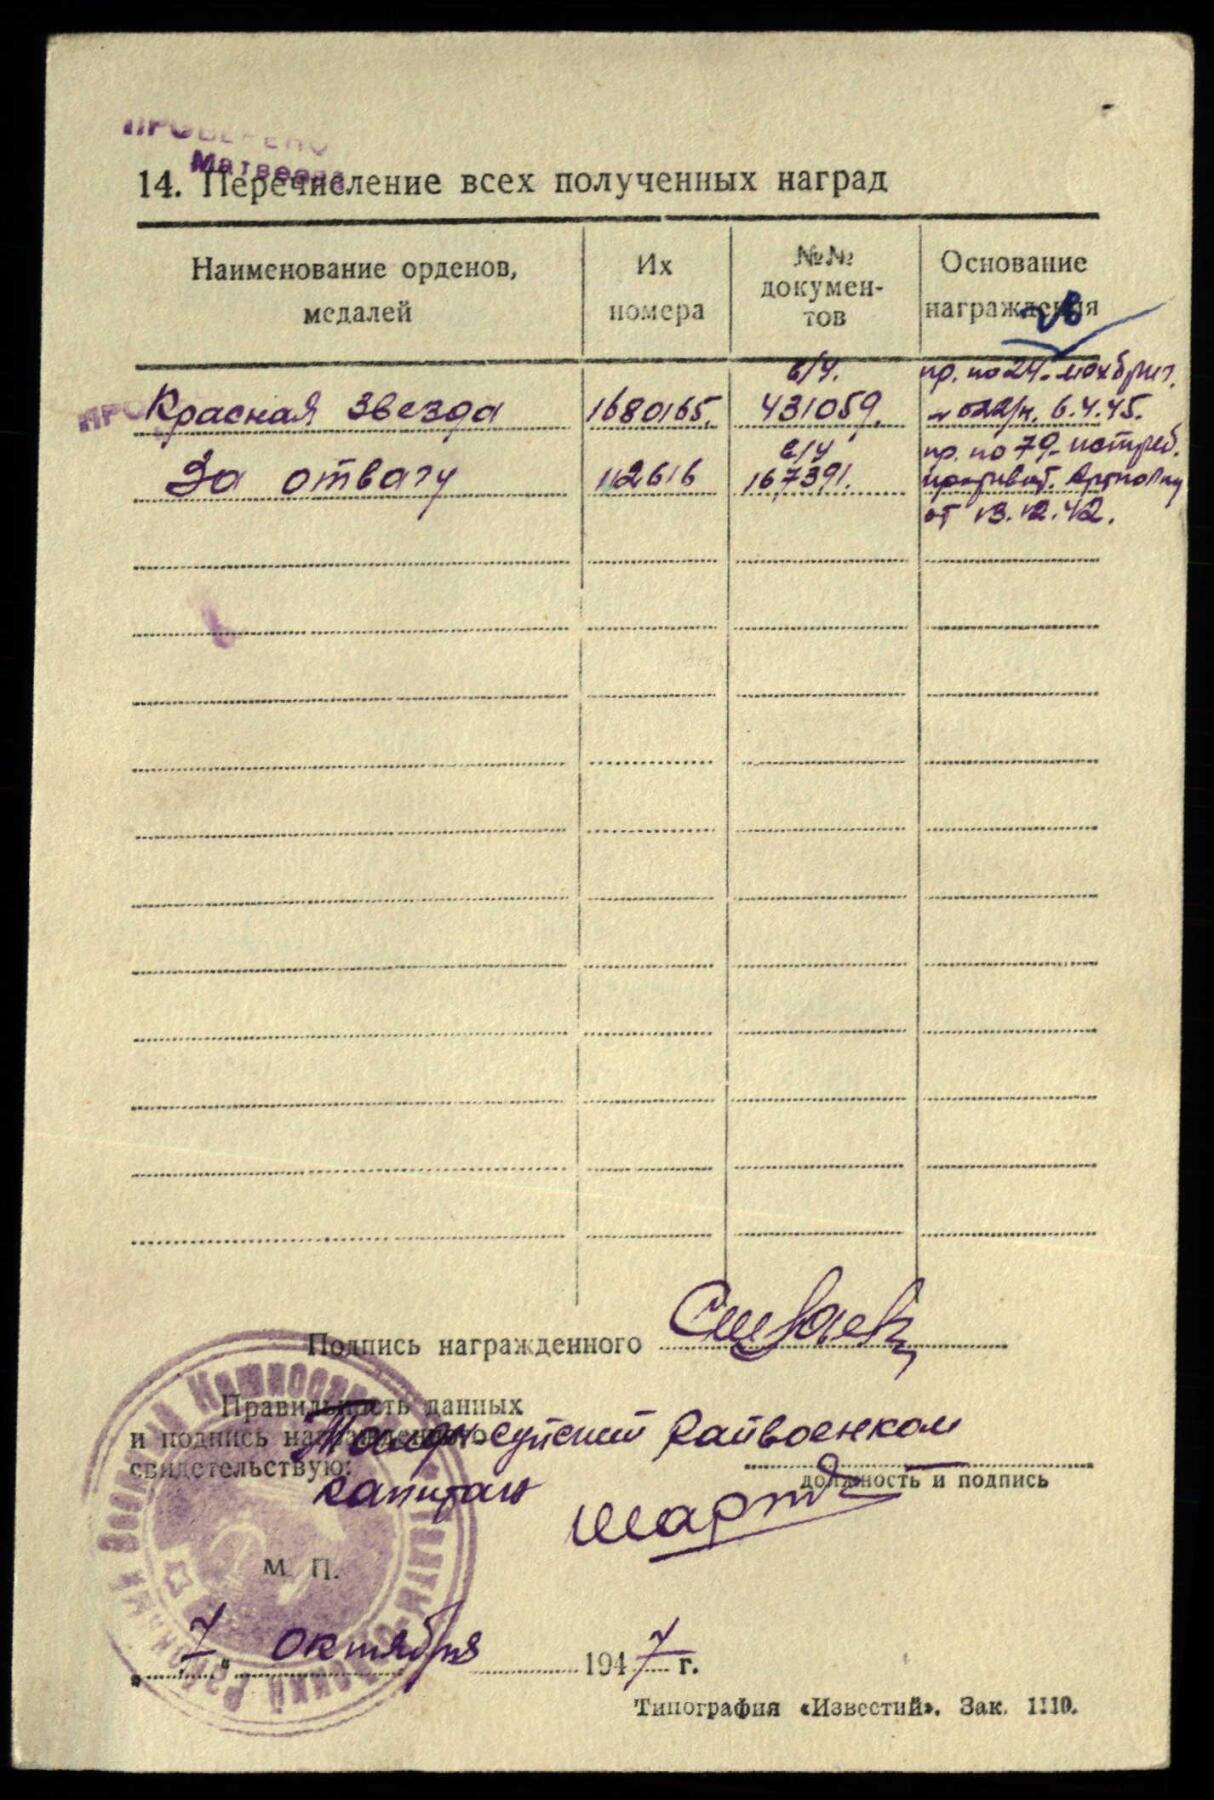 ПРОВЕРЕНО
Матвеева
14. Перечисление всех полученных наград
Наименование орденов,
медалей
Их
номера
№№
докумен-
тов
Основание
награждения
Красная Звезда
1680165.
в/ч.
431059.
пр. по 24
022/н. 6.4.45.
За отвагу
112616
в/ч
167391.
пр. по 79 истреб.
от 13.12.42.
Подпись награжденного
Правильность данных
и подпись награжденного
свидетельствую:
райвоенком
капитан
должность и подпись
М. П.
„ 7 “ октября 1947 г.
Типография «Известий». Зак. 1110.